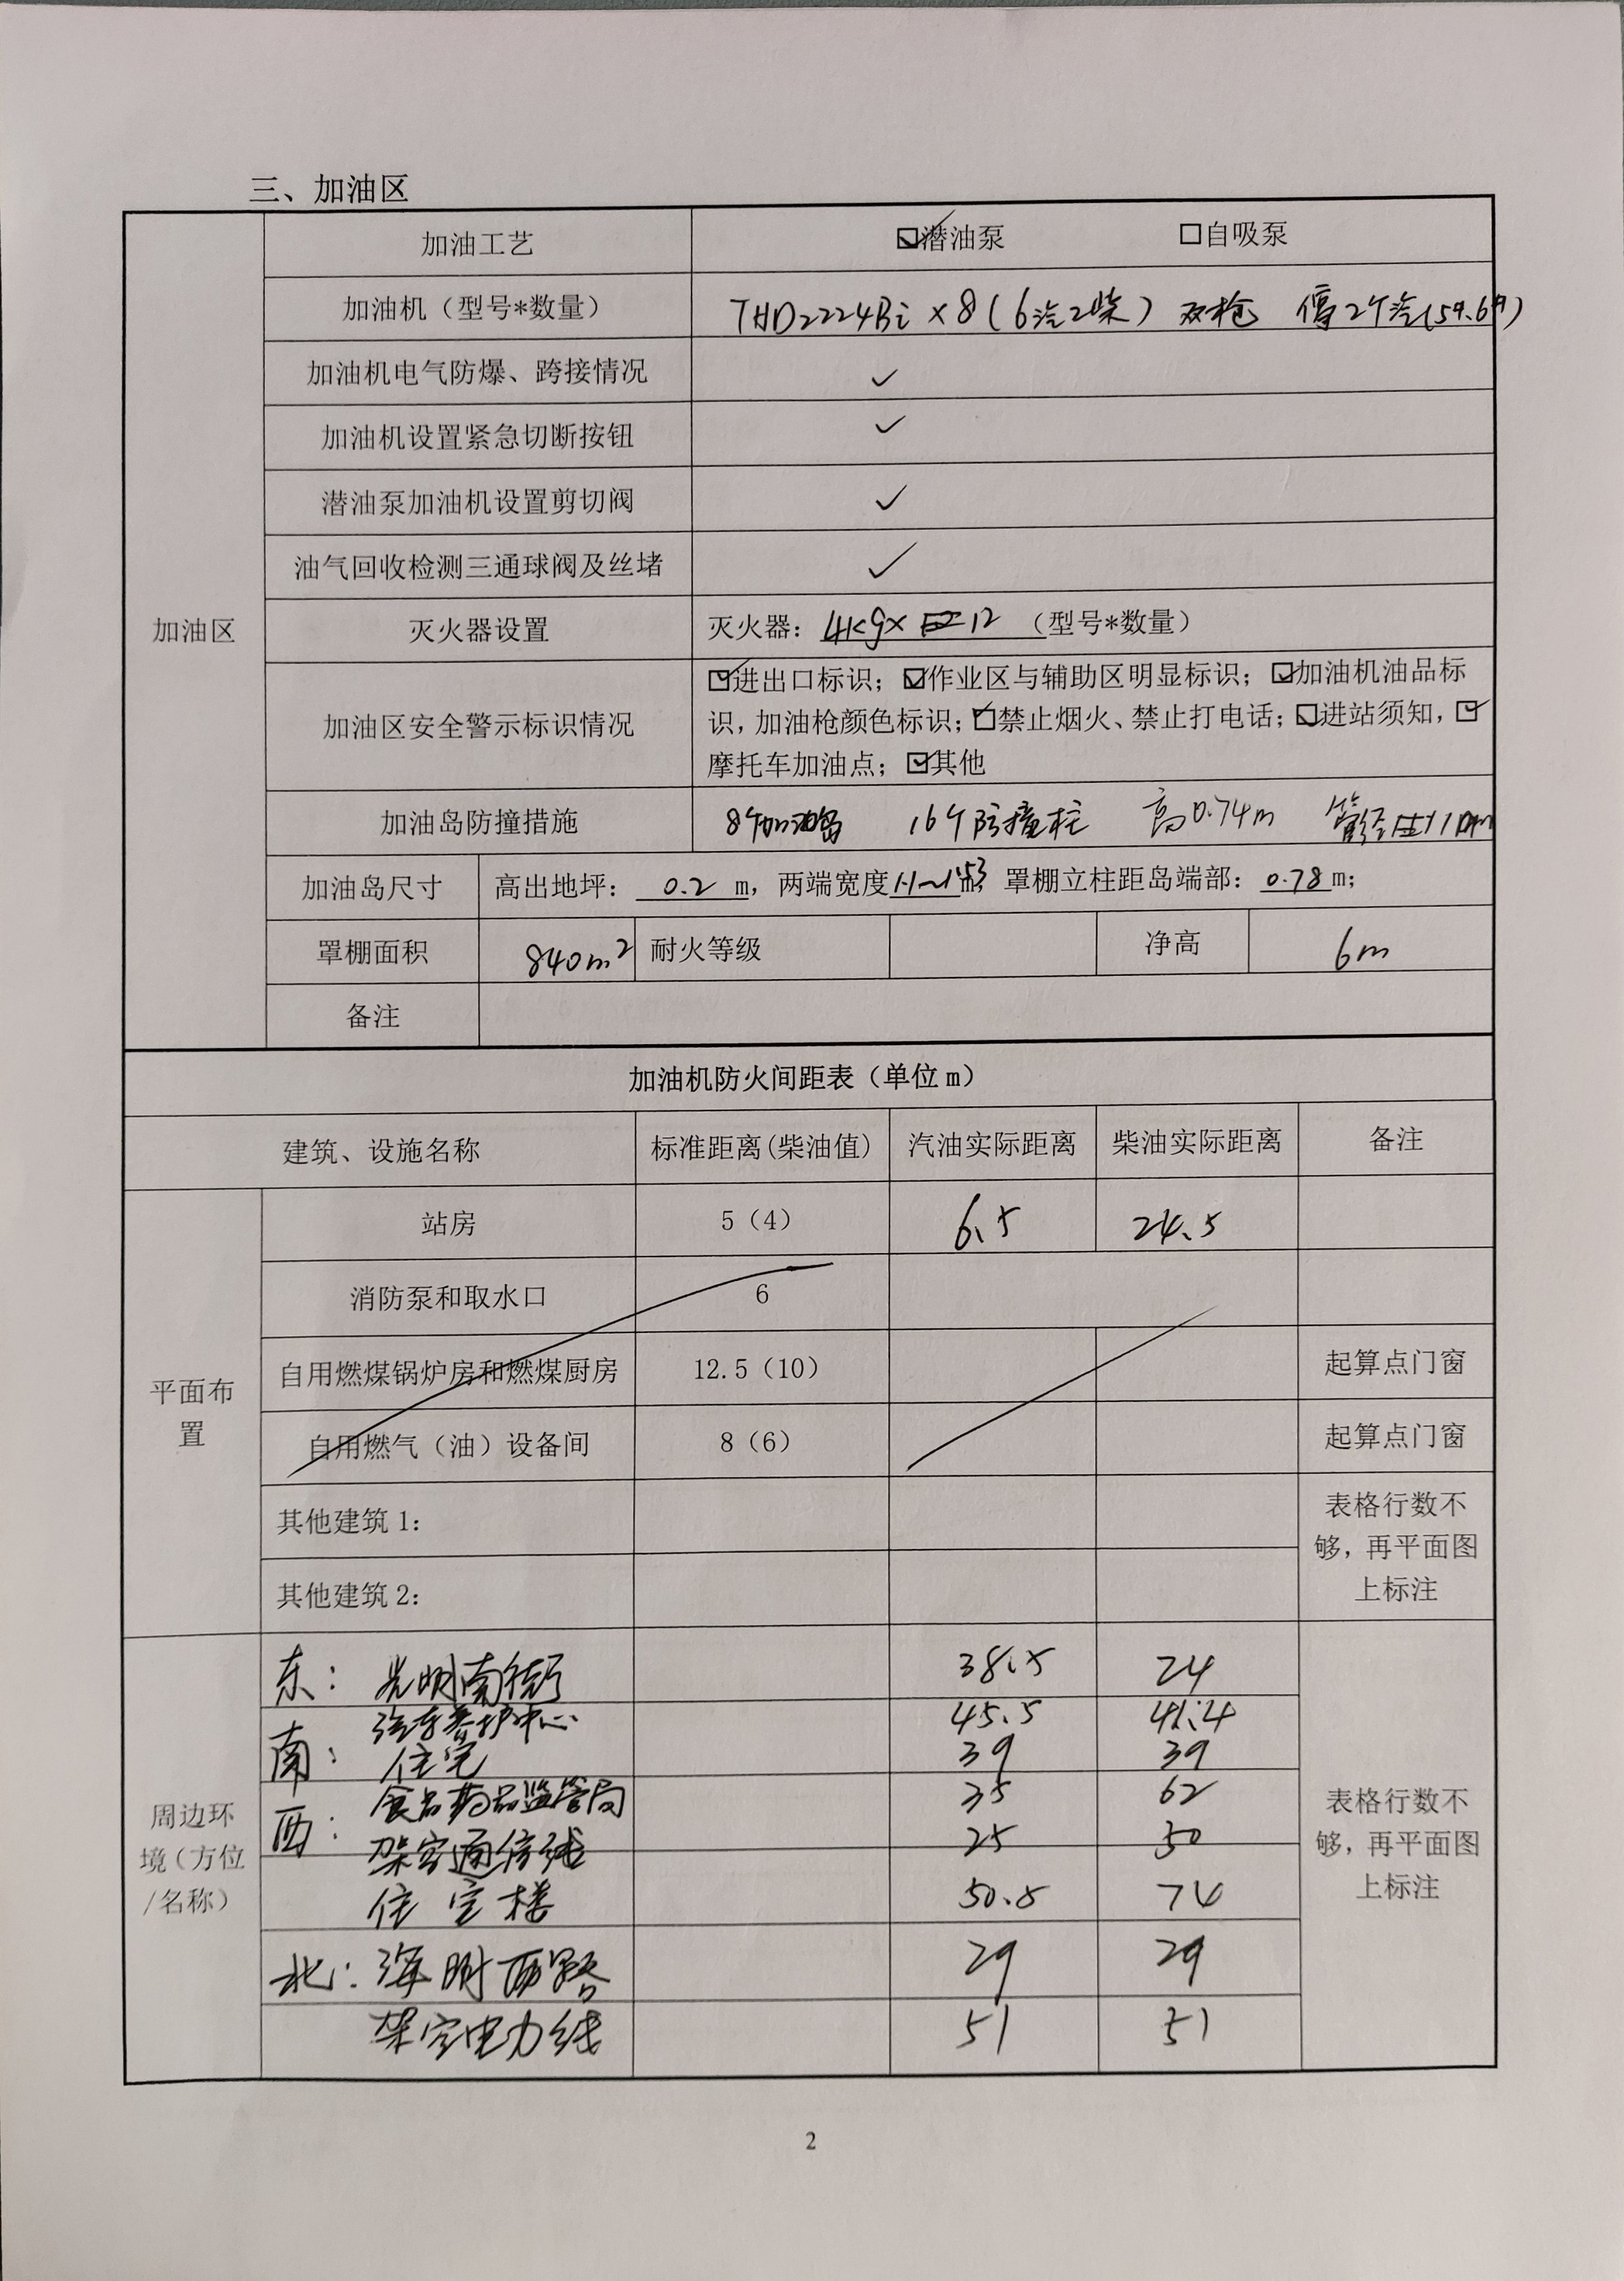 三、加油区
加油区
加油工艺 ☑潜油泵 □自吸泵
加油机（型号*数量） THD2224Bi×8(6汽2柴) 双枪 停2个汽(5#.6#)
加油机电气防爆、跨接情况 ✓
加油机设置紧急切断按钮 ✓
潜油泵加油机设置剪切阀 ✓
油气回收检测三通球阀及丝堵 ✓
灭火器设置 灭火器：4kg× 12 （型号*数量）
加油区安全警示标识情况 ☑进出口标识；☑作业区与辅助区明显标识；☑加油机油品标
识，加油枪颜色标识；☑禁止烟火、禁止打电话；☑进站须知，☑
摩托车加油点；☑其他
加油岛防撞措施 8个加油岛 16个防撞柱 高0.74m 管径
加油岛尺寸 高出地坪：0.2 m，两端宽度 罩棚立柱距岛端部：0.78m；
罩棚面积 840m² 耐火等级 净高 6m
备注
加油机防火间距表（单位m）
建筑、设施名称 标准距离(柴油值) 汽油实际距离 柴油实际距离 备注
平面布
置
站房 5（4） 6.5 24.5
消防泵和取水口 6
自用燃煤锅炉房和燃煤厨房 12.5（10） 起算点门窗
自用燃气（油）设备间 8（6） 起算点门窗
其他建筑1：
其他建筑2：
表格行数不
够，再平面图
上标注
周边环
境（方位
/名称）
东： 光明南街 38.5 24
南： 汽车养护中心 45.5 41.4
住宅 39 39
西： 食品药品监管局 35 62
架空通信线 25 50
住宅楼 50.5 74
北： 海附西路 29 29
架空电力线 51 51
表格行数不
够，再平面图
上标注
2